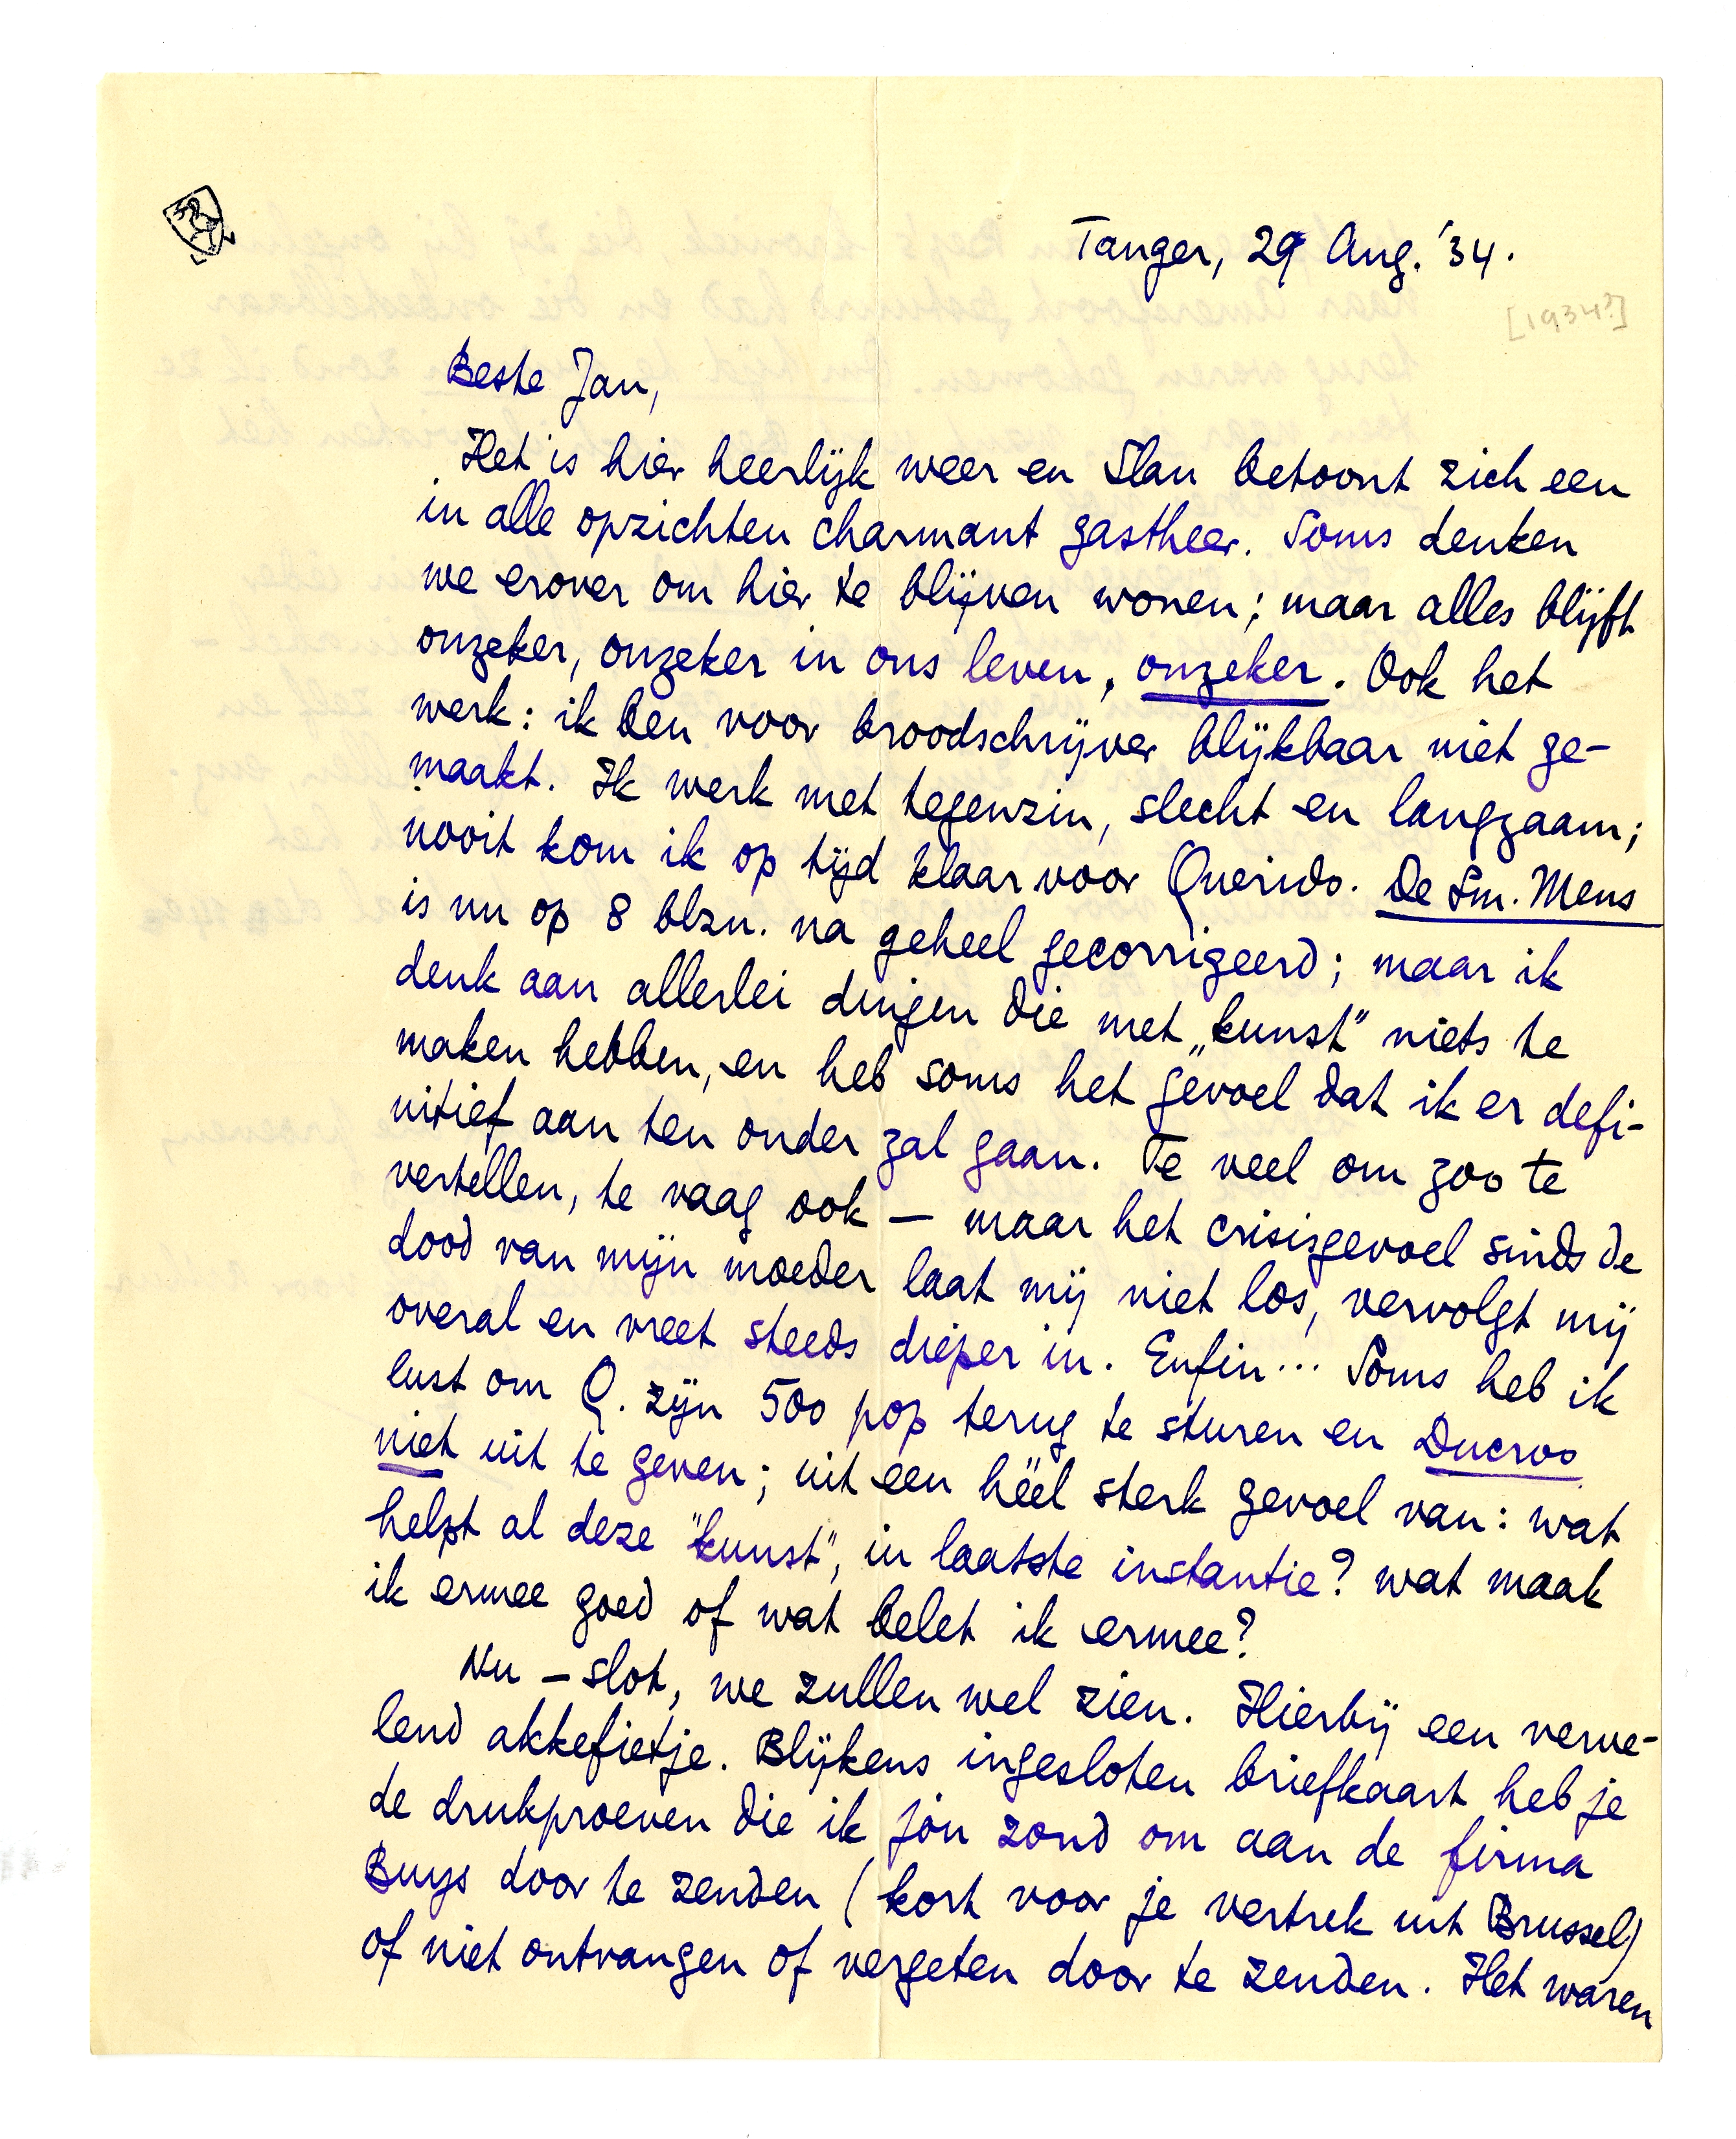 Tanger, 29 Aug. '34.
[1934?]
Beste Jan,
Het is hier heerlijk weer en Slau betoont zich een
in alle opzichten charmant gastheer. Soms denken
we erover om hier te blijven wonen; maar alles blijft
onzeker, onzeker in ons leven, onzeker. Ook het
werk: ik ben voor broodschrijver blijkbaar niet ge-
maakt. Ik werk met tegenzin, slecht en langzaam;
nooit kom ik op tijd klaar voor Querido. De Sm. Mens
is nu op 8 blzn. na geheel gecorrigeerd; maar ik
denk aan allerlei dingen die met „kunst" niets te
maken hebben, en heb soms het gevoel dat ik er defi-
nitief aan ten onder zal gaan. Te veel om zoo te
vertellen, te vaag ook — maar het crisisgevoel sinds de
dood van mijn moeder laat mij niet los, vervolgt mij
overal en vreet steeds dieper in. Enfin... Soms heb ik
lust om Q. zijn 500 pop terug te sturen en Ducroo
niet uit te geven; uit een héél sterk gevoel van: wat
helpt al deze "kunst", in laatste instantie? wat maak
ik ermee goed of wat belet ik ermee?
Nu – slot, we zullen wel zien. Hierbij een verve-
lend akkefietje. Blijkens ingesloten briefkaart heb je
de drukproeven die ik jou zond om aan de firma
Buys door te zenden (kort voor je vertrek uit Brussel)
of niet ontvangen of vergeten door te zenden. Het waren